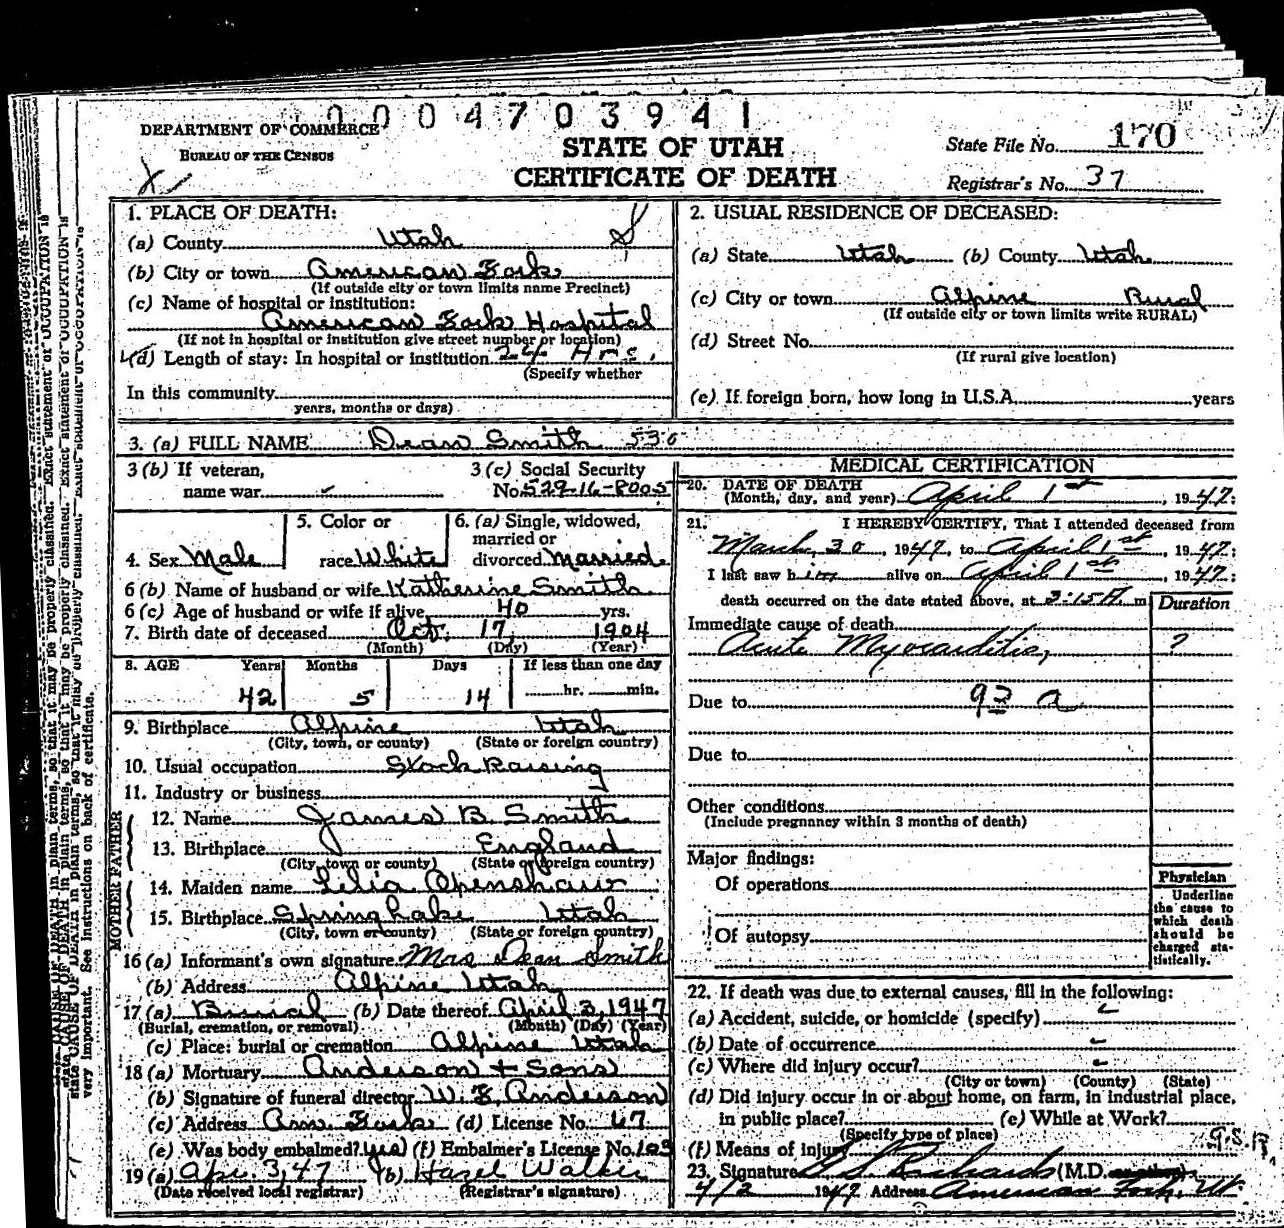 0004703941
DEPARTMENT OF COMMERCE
BUREAU OF THE CENSUS
STATE OF UTAH
CERTIFICATE OF DEATH
State File No. 170
Registrar's No. 37
1. PLACE OF DEATH:
(a) County Utah
(b) City or town American Fork
(If outside city or town limits name Precinct)
(c) Name of hospital or institution:
American Fork Hospital
(If not in hospital or institution give street number or location)
(d) Length of stay: In hospital or institution 24 Hrs.
(Specify whether
In this community
years, months or days)
2. USUAL RESIDENCE OF DECEASED:
(a) State Utah (b) County Utah
(c) City or town Alpine Rural
(If outside city or town limits write RURAL)
(d) Street No.
(If rural give location)
(e) If foreign born, how long in U.S.A. years
3. (a) FULL NAME Dean Smith 530
3 (b) If veteran,
name war
3 (c) Social Security
No. 529-16-8005
4. Sex Male
5. Color or
race White
6. (a) Single, widowed,
married or
divorced Married
6 (b) Name of husband or wife Katherine Smith
6 (c) Age of husband or wife if alive 40 yrs.
7. Birth date of deceased Oct. 17, 1904
(Month) (Day) (Year)
8. AGE Years Months Days If less than one day
42 5 14 hr. min.
9. Birthplace Alpine Utah
(City, town, or county) (State or foreign country)
10. Usual occupation Stock Raising
11. Industry or business
FATHER
12. Name James B. Smith
13. Birthplace England
(City, town or county) (State or foreign country)
MOTHER
14. Maiden name Lilia Openshaw
15. Birthplace Spring Lake Utah
(City, town or county) (State or foreign country)
16 (a) Informant's own signature Mrs Dean Smith
(b) Address Alpine Utah
17 (a) Burial (b) Date thereof April 3, 1947
(Burial, cremation, or removal) (Month) (Day) (Year)
(c) Place: burial or cremation Alpine Utah
18 (a) Mortuary Anderson + Sons
(b) Signature of funeral director W. F. Anderson
(c) Address Am. Fork (d) License No. 67
(e) Was body embalmed? yes (f) Embalmer's License No. 103
19 (a) Apr. 3, 47 (b) Hazel Walker
(Date received local registrar) (Registrar's signature)
MEDICAL CERTIFICATION
20. DATE OF DEATH
(Month, day, and year) April 1st, 1947:
21. I HEREBY CERTIFY, That I attended deceased from
March 30, 1947, to April 1st, 1947:
I last saw him alive on April 1st, 1947;
death occurred on the date stated above, at 3:15 A. m
Duration
Immediate cause of death
Acute Myocarditis, ?
Due to 93 a
Due to
Other conditions
(Include pregnancy within 3 months of death)
Major findings:
Of operations
Of autopsy
Physician
Underline
the cause to
which death
should be
charged sta-
tistically.
22. If death was due to external causes, fill in the following:
(a) Accident, suicide, or homicide (specify)
(b) Date of occurrence
(c) Where did injury occur?
(City or town) (County) (State)
(d) Did injury occur in or about home, on farm, in industrial place,
in public place? (e) While at Work?
(Specify type of place)
(f) Means of injury
23. Signature Richards (M.D.
4/2 1947 Address American Fork, Ut.
very important. See instructions on back of certificate.